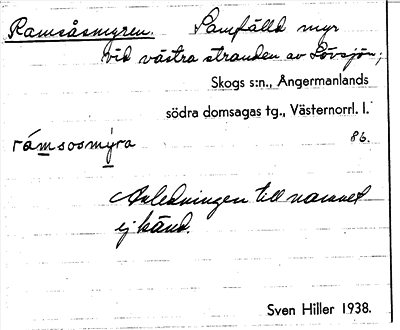 Ramsåsmyren. Samfälld myr
vid västra stranden av Lövsjön;
Skogs s:n., Ångermanlands
södra domsagas tg., Västernorrl. l.
rámsosmýra 86.
Anledningen till namnet
ej känd.
Sven Hiller 1938.